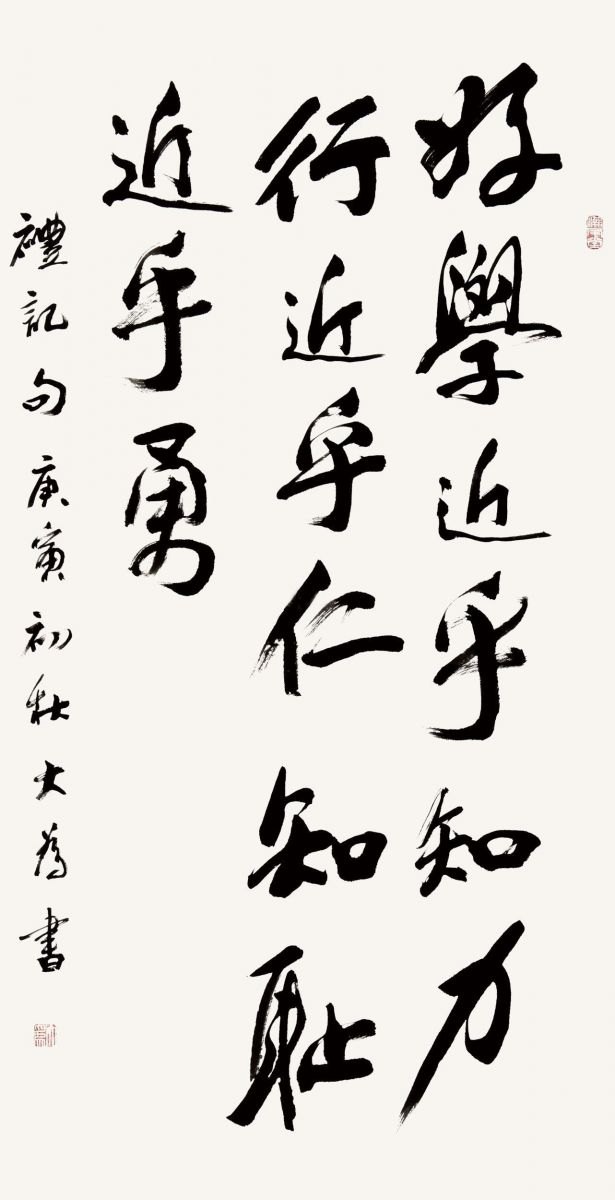 好學近乎知力
行近乎仁知耻
近乎勇
禮記句庚寅初秋大為書